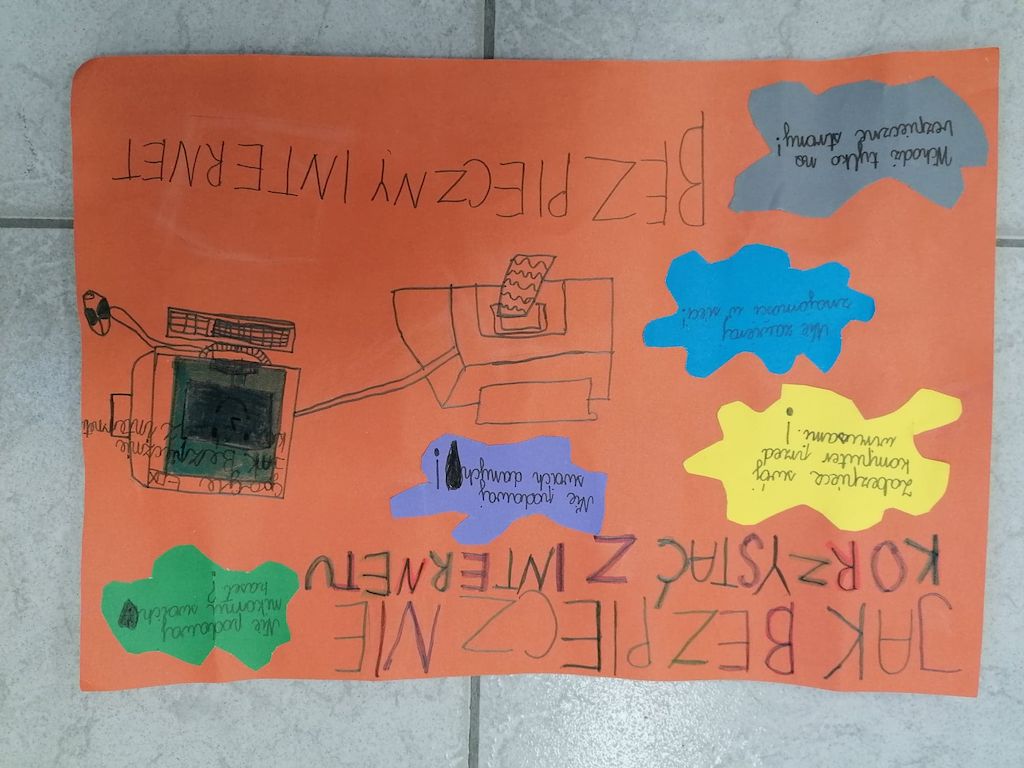 JAK BEZPIECZNIE
KORZYSTAĆ Z INTERNETU
Nie podaway
nikomu swoich
haseł!
Nie podaway
swoich danych!
Zabezpiecz swój
komputer przed
wirusami.!
Nie zawieray
znajomości w sieci.
Wchodź tylko na
bezpieczne strony!
JAK Bezpiecznie
BEZPIECZNY INTERNET